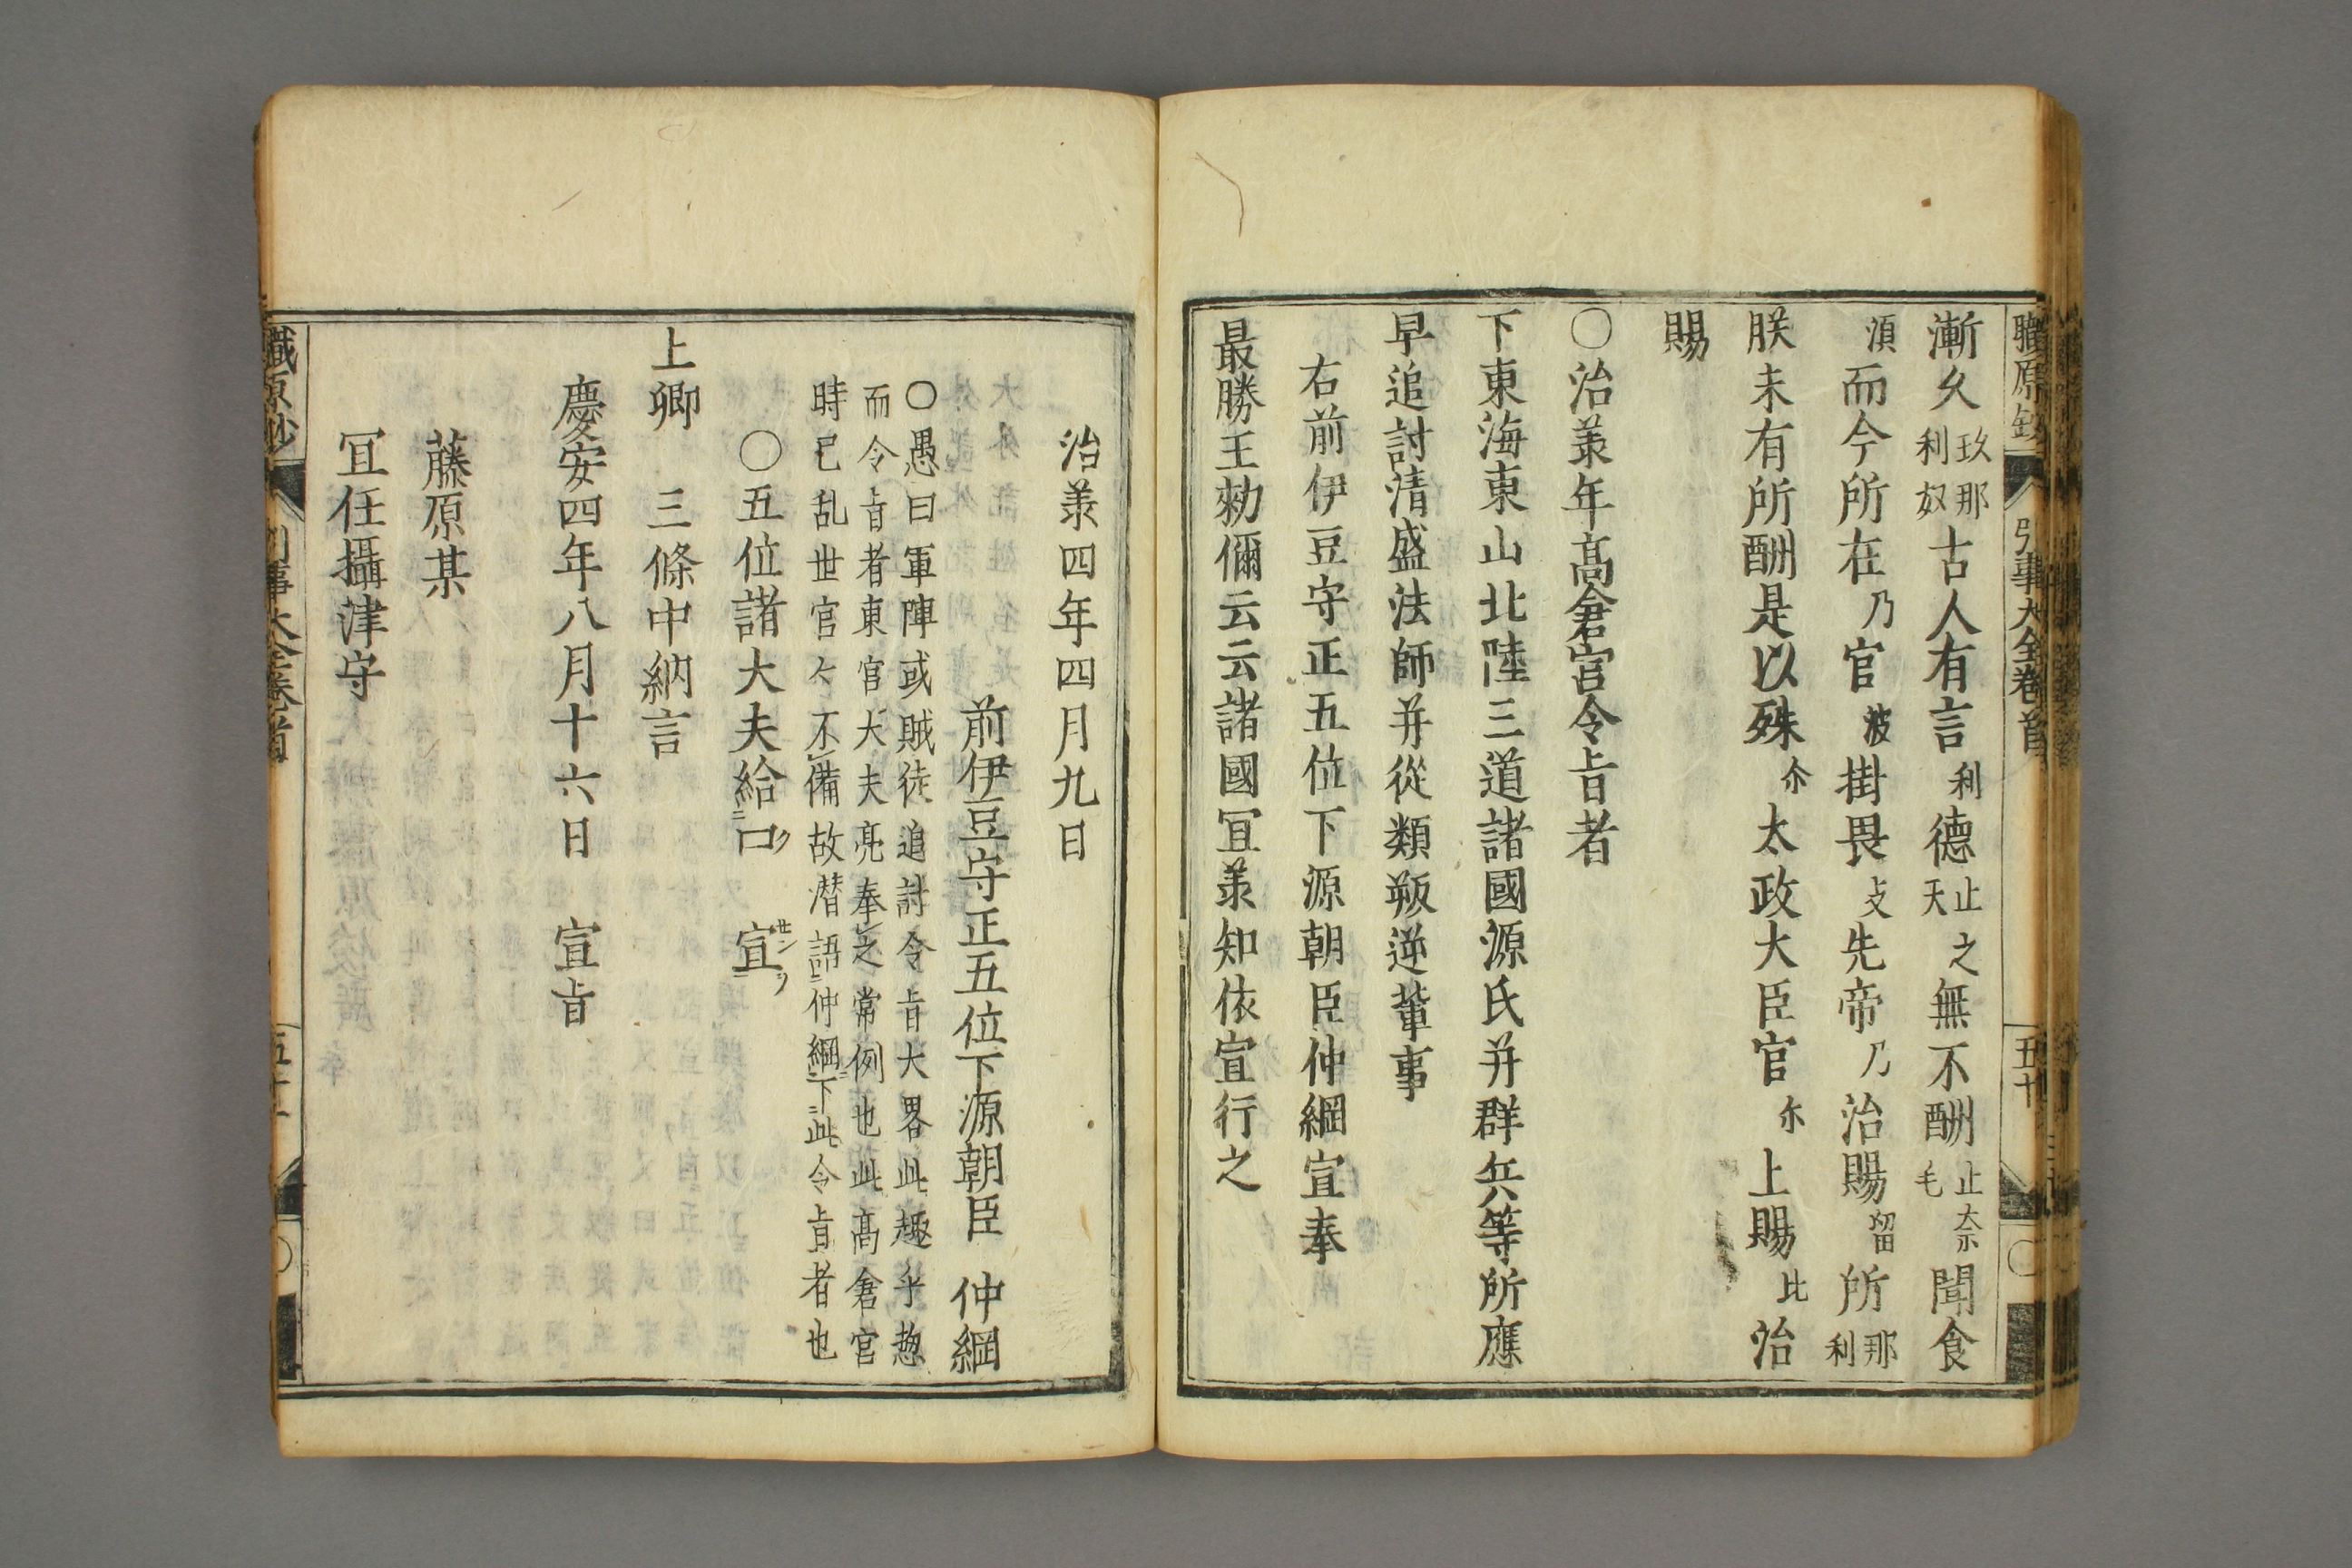 職原鈔　引事大全卷首　五十
漸久玖那利奴古人有言利德止天之無不酬止奈毛聞食
湏而今所在乃官波掛畏支先帝乃治賜留所那利
朕未有所酬是以殊尒太政大臣官尒上賜比治
賜
〇治羕年髙倉宮令㫖者
下東海東山北陸三道諸國源氏并群兵等所應
早追討清盛法師并從類叛逆輩事
右前伊豆守正五位下源朝臣仲綱宣奉
最勝王勅偁云云諸國冝羕知依宣行之
治羕四年四月九日
前伊豆守正五位下源朝臣　仲綱
〇愚曰軍陣或賊徒追討令㫖大畧此趣乎惣
而令㫖者東宮大夫亮奉之常例也此髙倉宮
時已乱世官々不備故潜語仲綱下此令㫖者也
〇五位諸大夫給口　宣
上卿　三條中納言
慶安四年八月十六日　宣㫖
藤原某
冝任攝津守
職原鈔　引事大全卷首　五十一